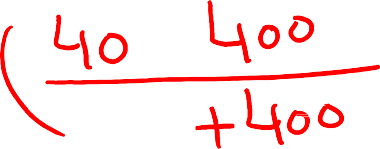 ( 40 400
+400